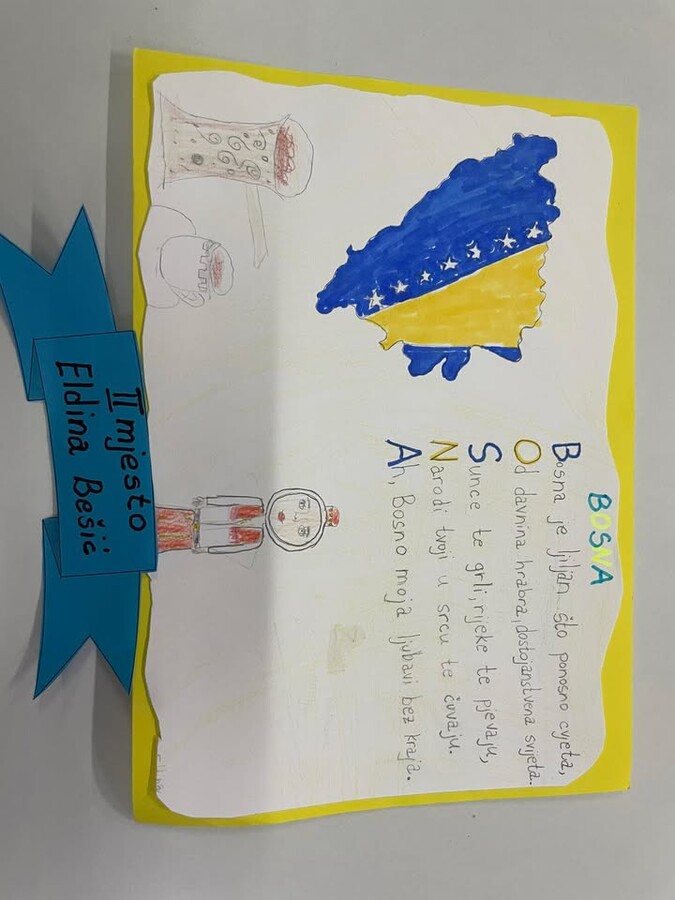 BOSNA
Bosna je ljiljan što ponosno cvjeta,
Od davnina hrabra, dostojanstvena svijeta.
Sunce te grli, rijeke te pjevaju,
Narodi tvoji u srcu te čuvaju.
Ah, Bosno moja ljubavi bez kraja.
II mjesto
Eldina Bešić